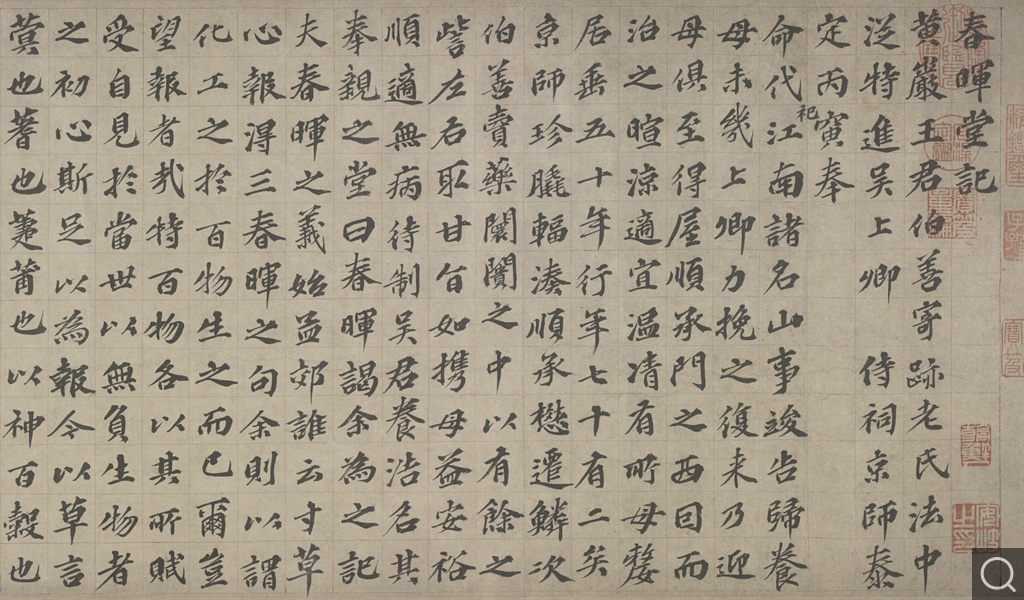 春暉堂記
黄巖王君伯善寄跡老氏法中
從特進吴上卿 侍祠京師泰
定丙寅奉
命代祀江南諸名山事竣告歸養
母未幾上卿力挽之復来乃迎
母俱至得屋順承門之西因而
治之暄涼適宜温凊有所母嫠
居垂五十年行年七十有二矣
京師珍膬輻湊順承懋遷鱗次
伯善賣藥闤闠之中以有餘之
訾左右取甘旨如携母益安裕
順適無病待制吴君養浩名其
奉親之堂曰春暉謁余為之記
夫春暉之義始孟郊誰云寸草
心報得三春暉之句余則以謂
化工之於百物生之而已爾豈
望報者哉特百物各以其所賦
受自見於當世以無負生物者
之初心斯足以為報今以草言
蓂也蓍也萐莆也以神百穀也